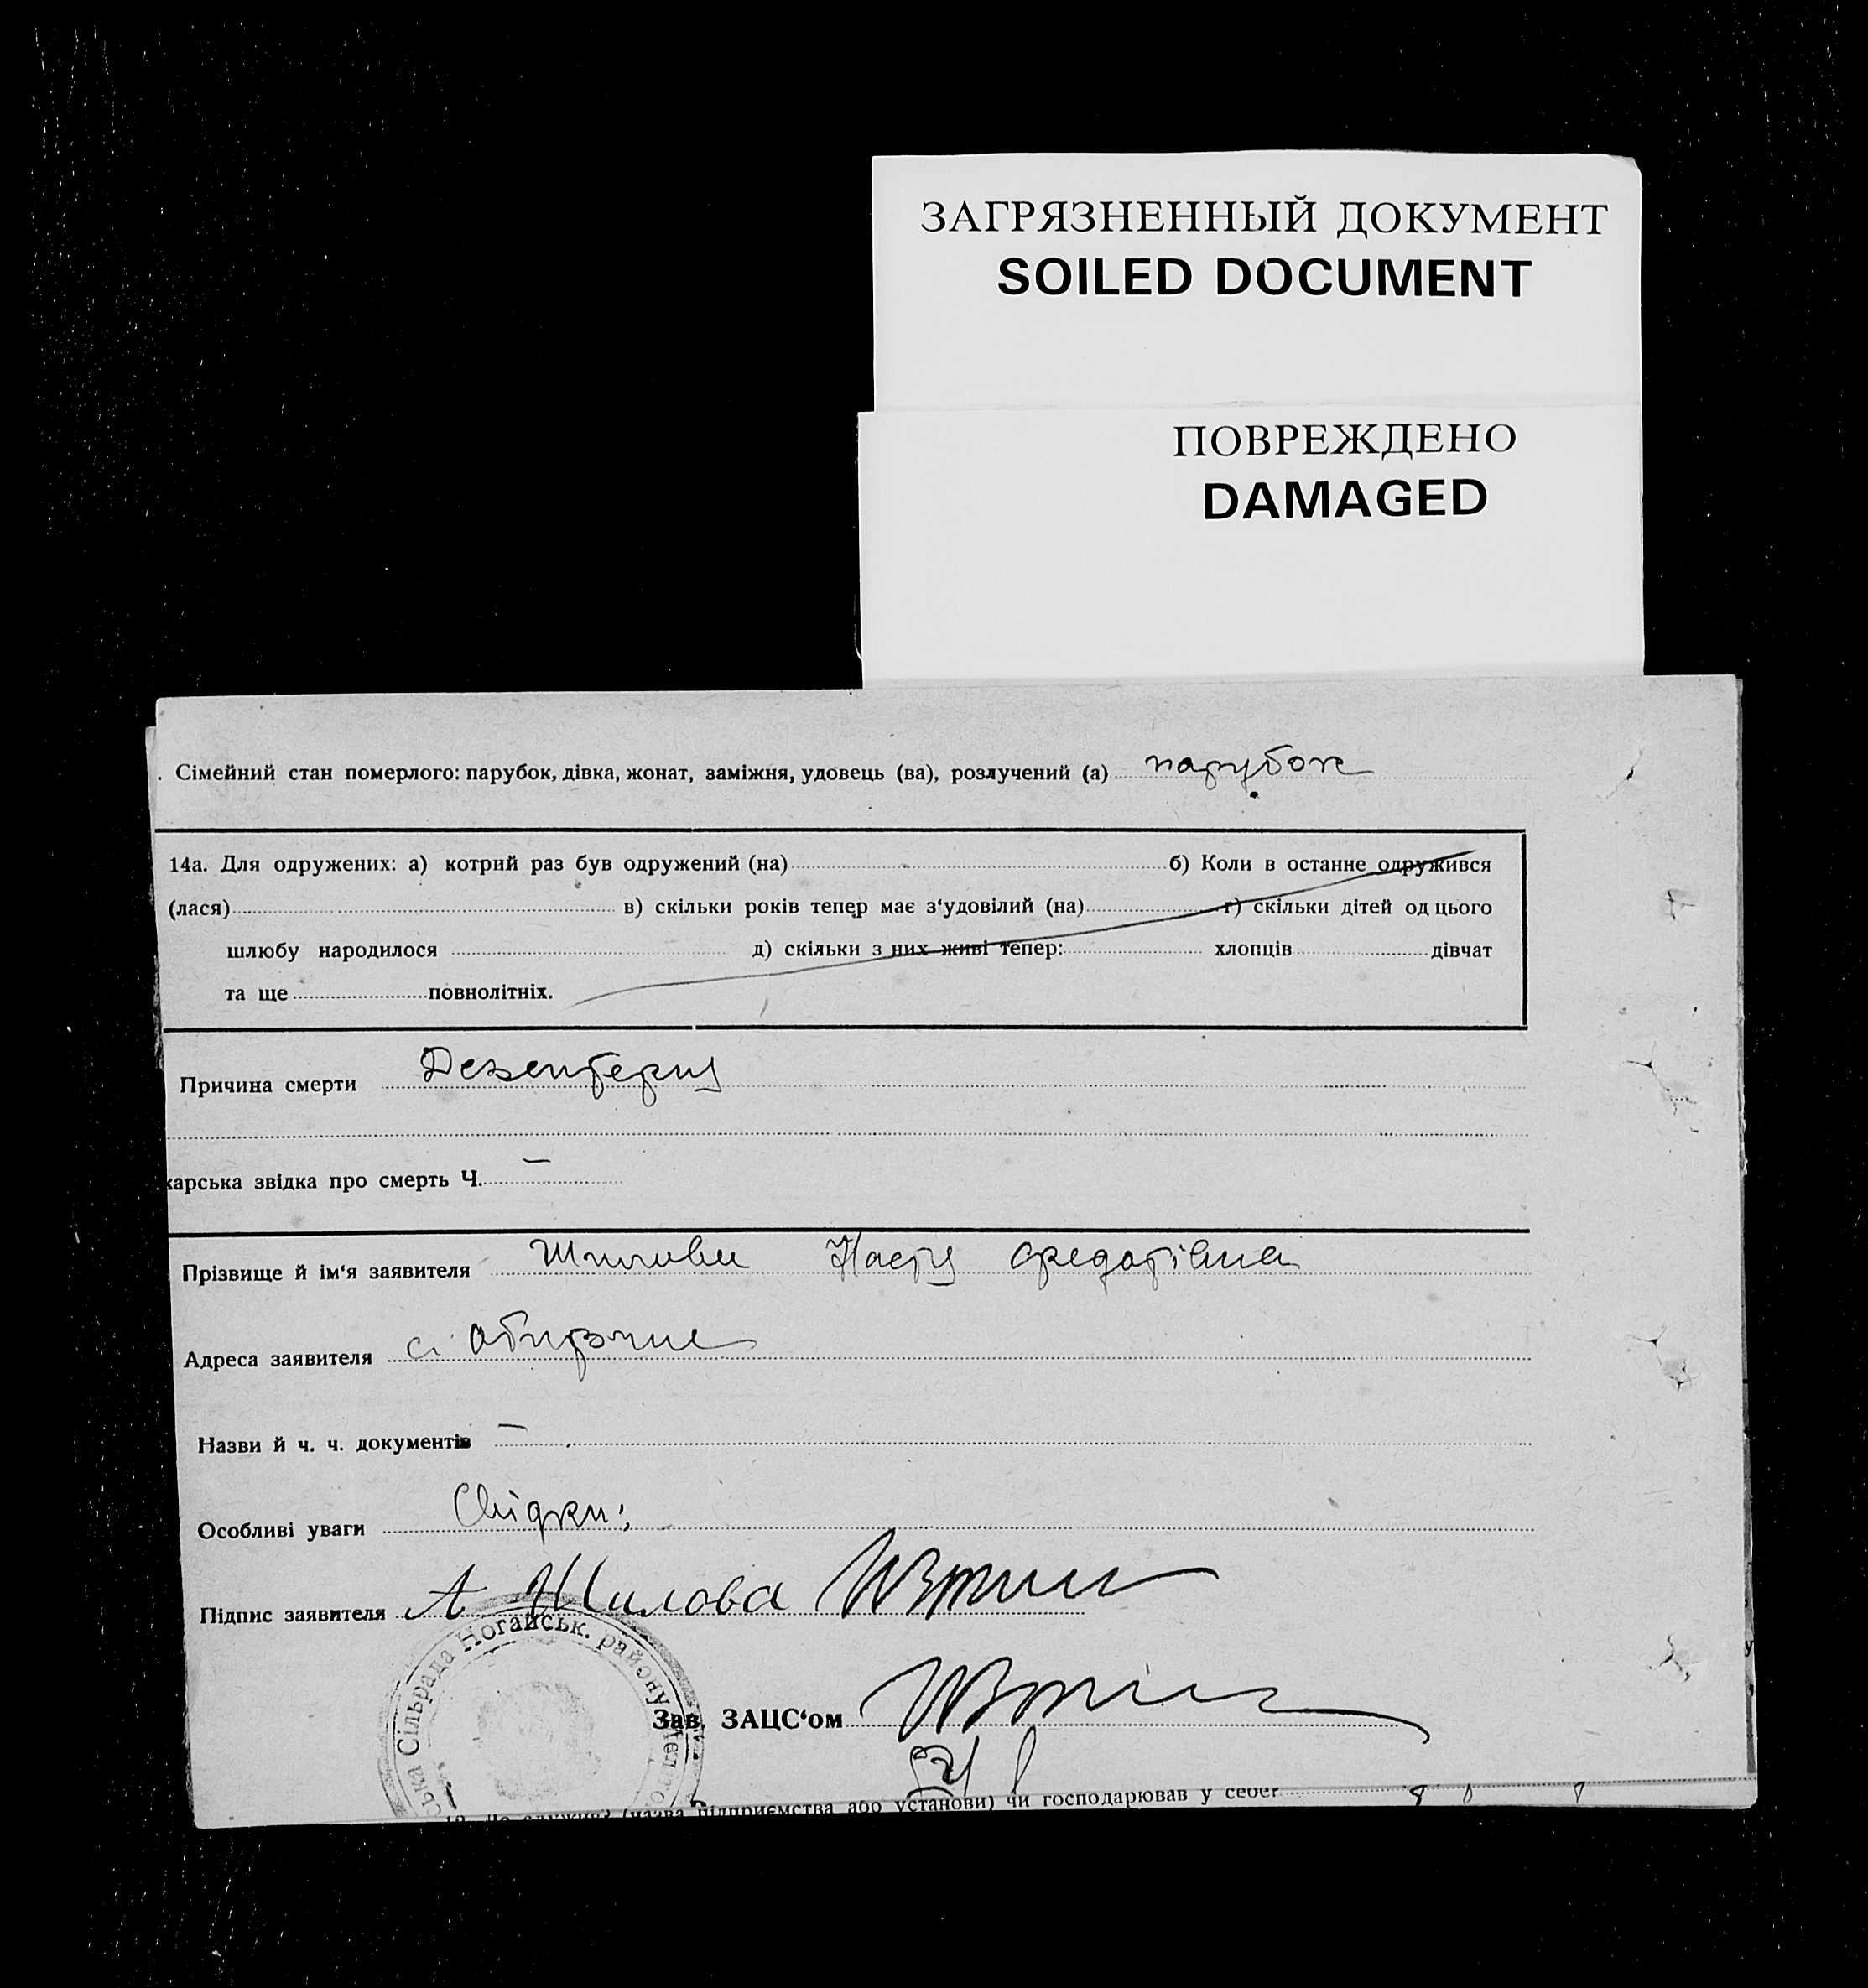 ЗАГРЯЗНЕННЫЙ ДОКУМЕНТ
SOILED DOCUMENT
ПОВРЕЖДЕНО
DAMAGED
. Сімейний стан померлого: парубок, дівка, жонат, заміжня, удовець (ва), розлучений (а) парубок
14а. Для одружених: а) котрий раз був одружений (на) б) Коли в останне одружився
(лася) в) скільки років тепер має з‘удовілий (на) г) скільки дітей од цього
шлюбу народилося д) скільки з них живі тепер: хлопців дівчат
та ще повнолітніх.
Причина смерти Дезентерия
карська звідка про смерть Ч. —
Прізвище й ім‘я заявителя Настя
Адреса заявителя с.
Назви й ч. ч. документів —
Особливі уваги Свідки:
Підпис заявителя А Шилова
Сільрада Ногайськ. району
Зав. ЗАЦС‘ом
(назва підприємства або установи) чи господарював у себе